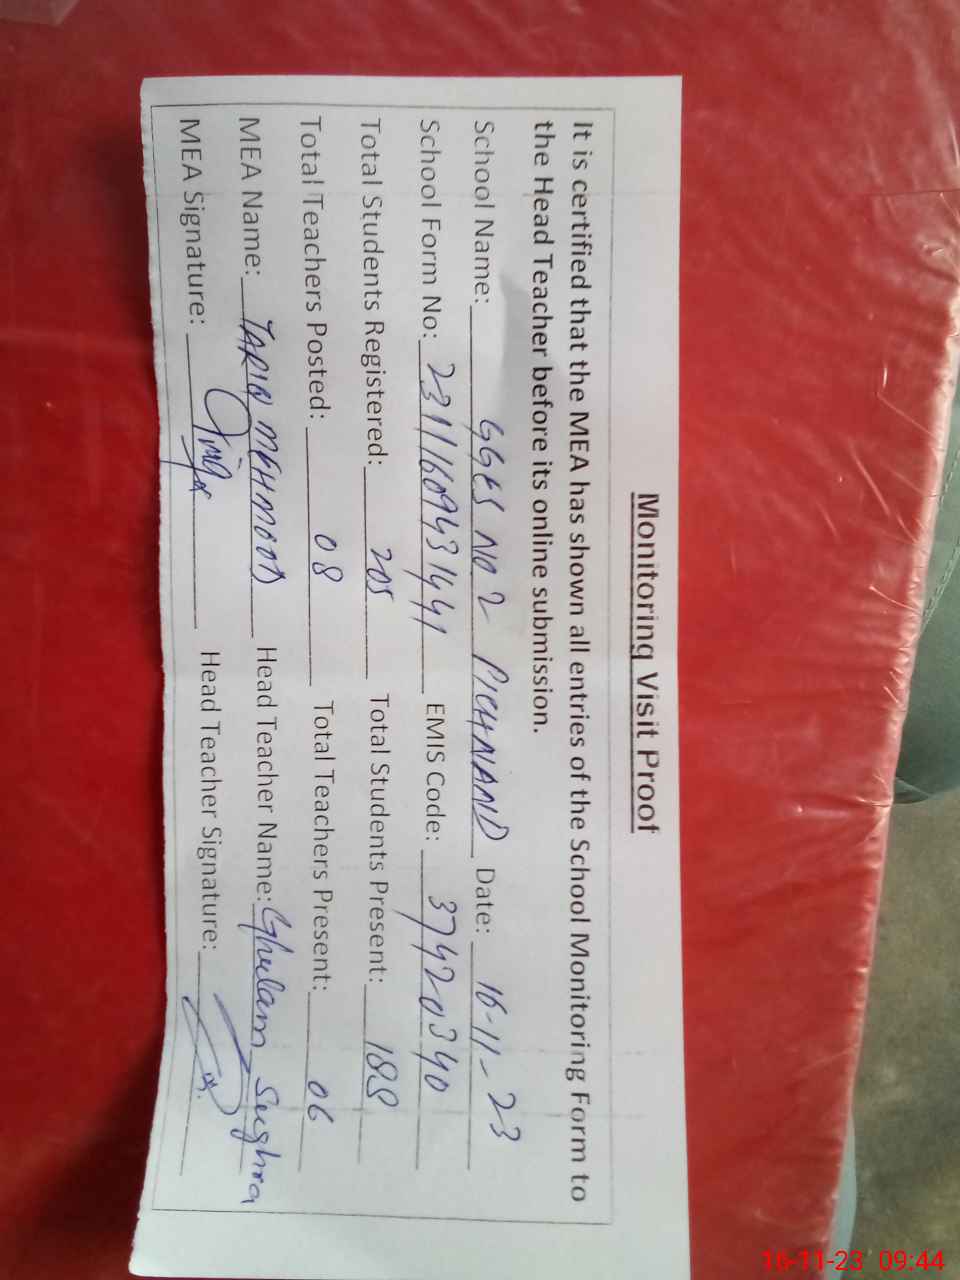 Monitoring Visit Proof
It is certified that the MEA has shown all entries of the School Monitoring Form to
the Head Teacher before its online submission.
School Name: GGES NO 2 PICHNAND Date: 16-11-23
School Form No: 23111609431441 EMIS Code: 37420340
Total Students Registered: 205 Total Students Present: 188
Total Teachers Posted: 08 Total Teachers Present: 06
MEA Name: TARIQ MEHMOOD Head Teacher Name: Ghulam Sughra
MEA Signature: Head Teacher Signature:
16-11-23 09:44